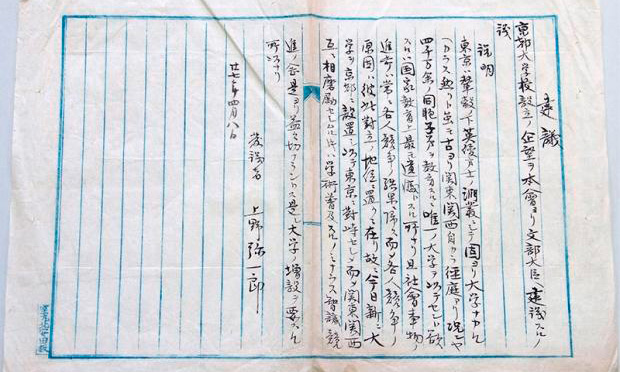 建議
京都大学校設立ノ企望ヲ本會ヨリ文部大臣ヘ建議スルノ
議
説明
東京ハ輦轂ノ下英俊才士ノ淵叢ニシテ固ヨリ大学ナカル
ヘカラスト雖トモ古ヨリ関東関西自カラ径庭アリ況ンヤ
四千万余ノ同胞子弟ヲ教育スルニ唯一ノ大学ヲ以テセント欲
スルハ国家教育上最モ遺憾トスル所ナリ且社會事物ノ
進歩ハ常ニ各人競争ノ結果ニ帰ス而シテ各人競争ノ
原因ハ彼此對立ノ地位ニ置クニ在リ故ニ今日新ニ大
学ヲ京都ニ設置シ以テ東京ニ對峙セシメ而シテ関東関西
互ニ相磨励セシムルトキハ学術普及スルノミナラス智識競
進ノ念是ヨリ益々切ナラントス是レ大学ノ増設ヲ要スル
所以ナリ
廿七年四月八日
発議者 上野弥一郎